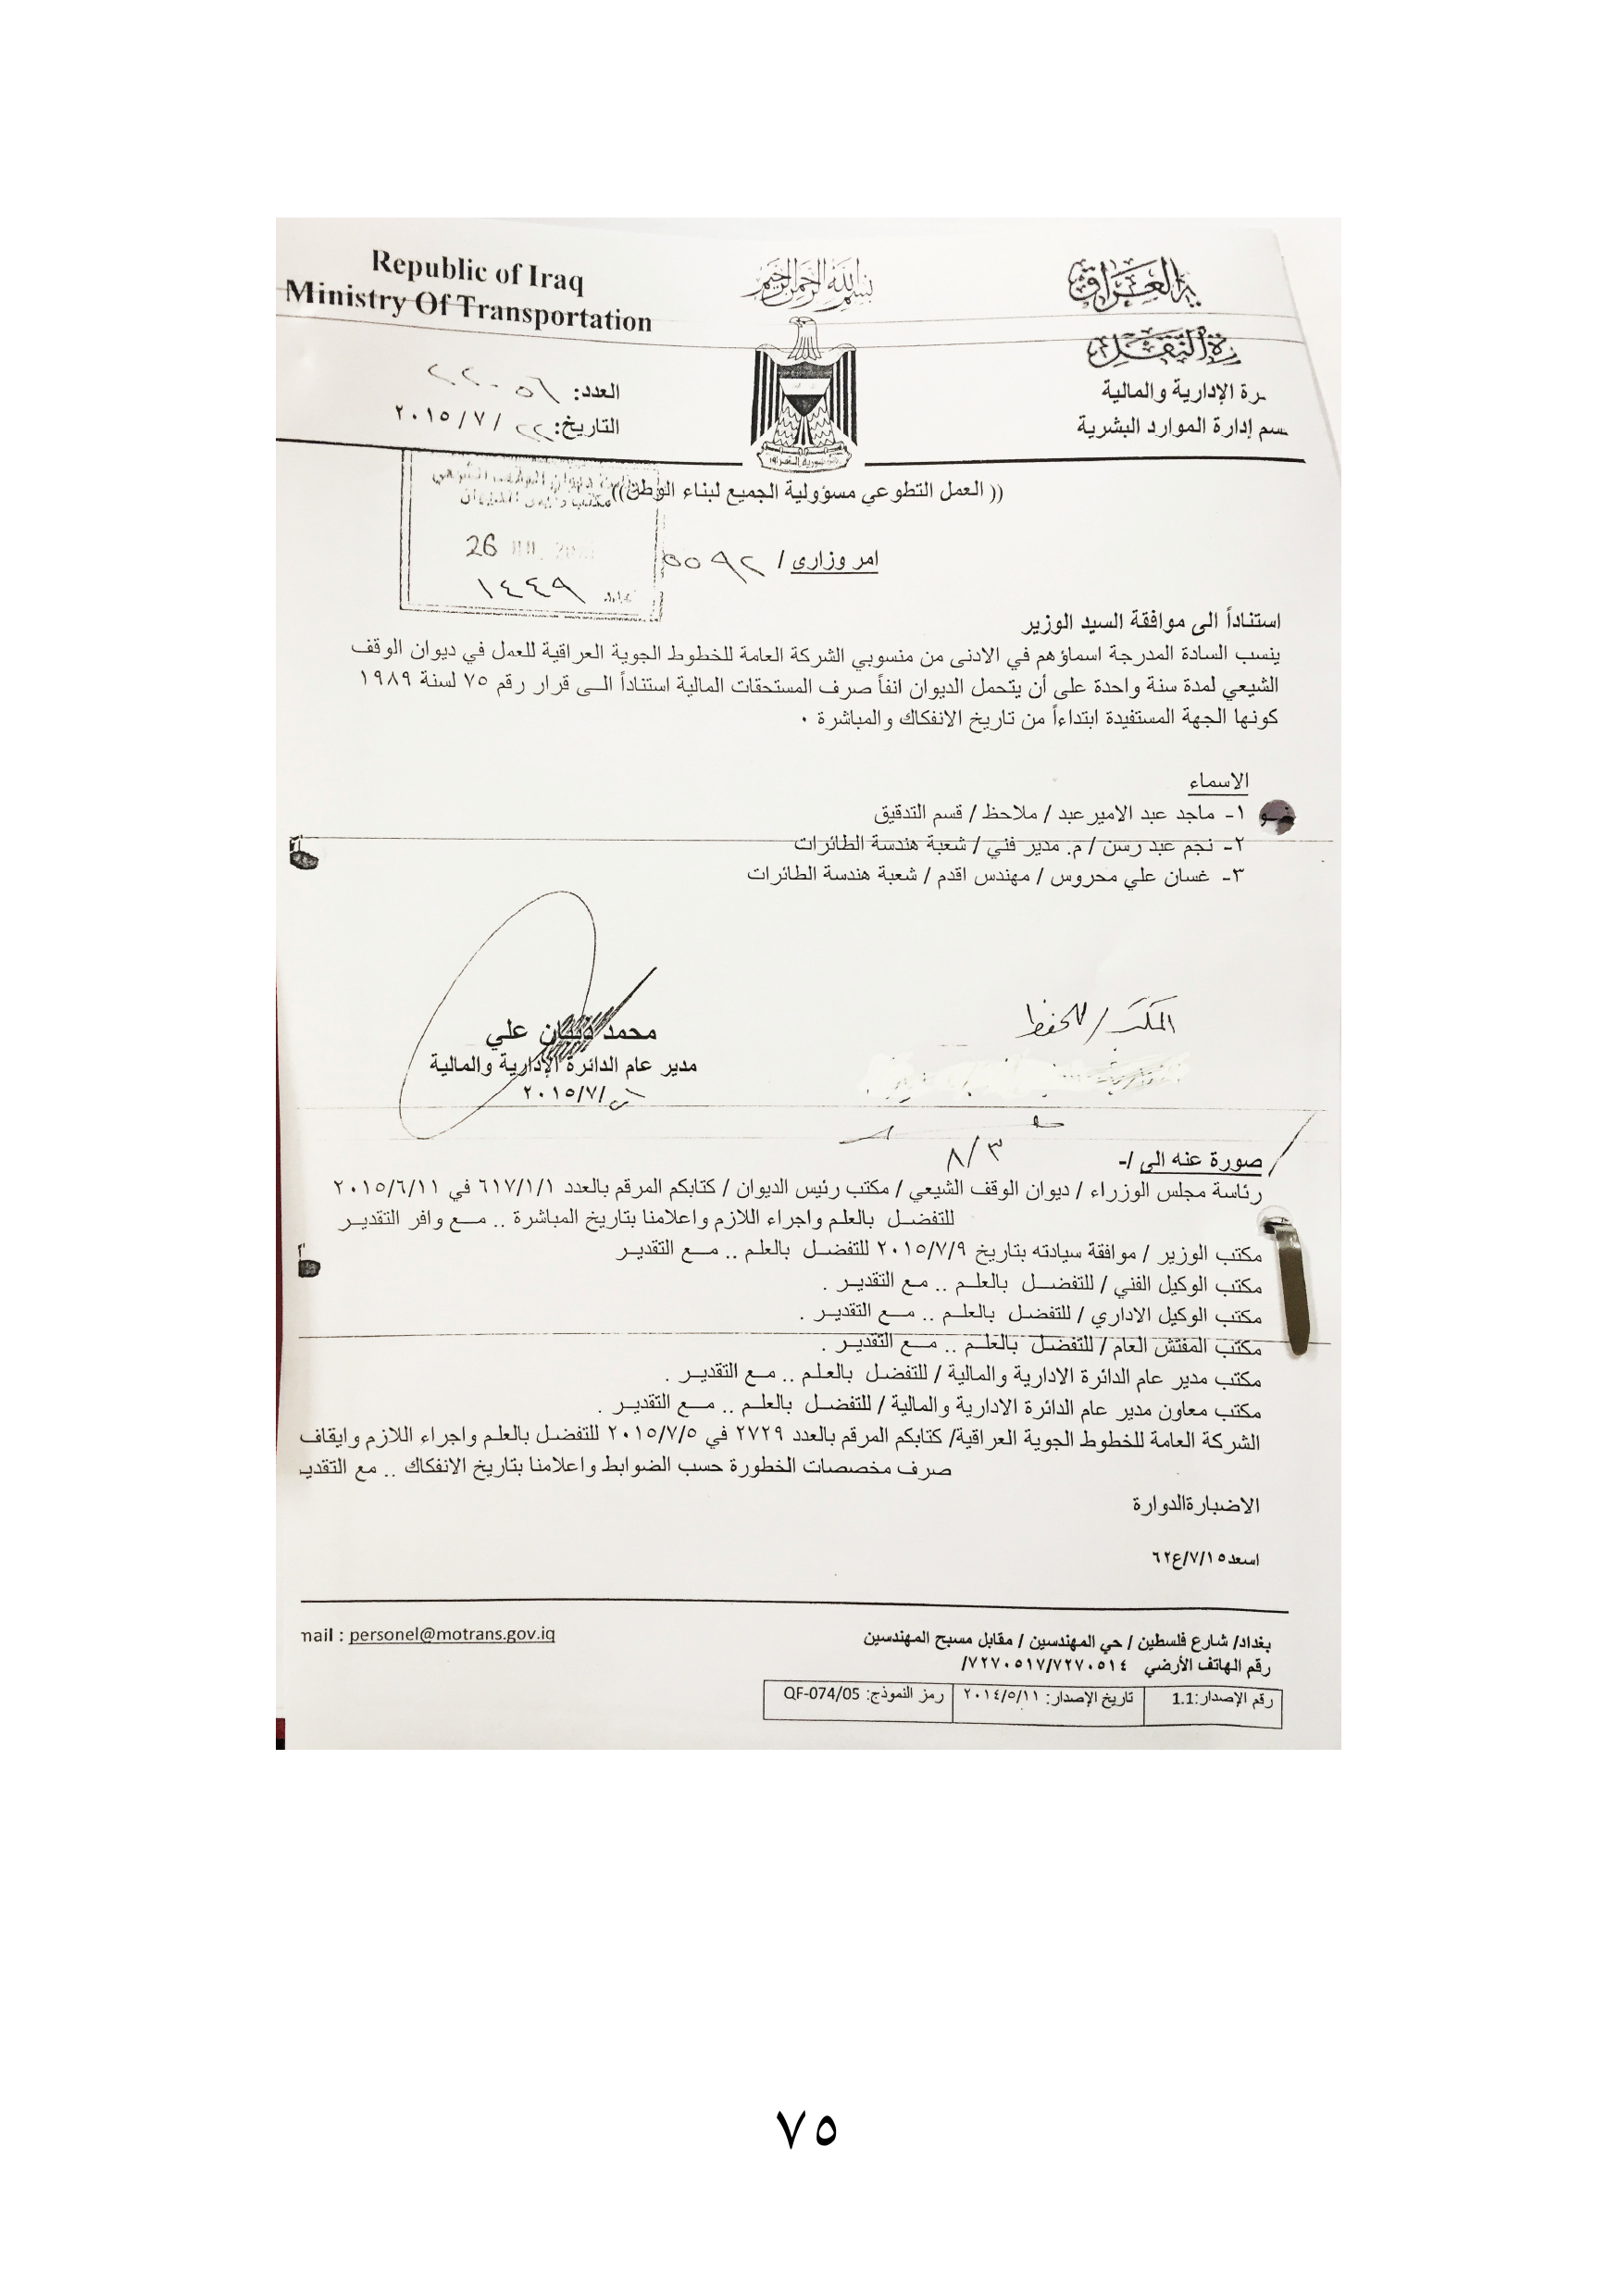 Republic of Iraq
Ministry Of Transportation
بسم الله الرحمن الرحيم
ية العراق
رة النقل
رة الإدارية والمالية
سم إدارة الموارد البشرية
العدد: ٢٢٠٥٦
التاريخ: ٢٢/ ٧/ ٢٠١٥
(( العمل التطوعي مسؤولية الجميع لبناء الوطن))
26
١٤٤٩
امر وزاري / ٥٥٩٢
استناداً الى موافقة السيد الوزير
ينسب السادة المدرجة اسماؤهم في الادنى من منسوبي الشركة العامة للخطوط الجوية العراقية للعمل في ديوان الوقف
الشيعي لمدة سنة واحدة على أن يتحمل الديوان انفاً صرف المستحقات المالية استناداً الـى قرار رقم ٧٥ لسنة ١٩٨٩
كونها الجهة المستفيدة ابتداءاً من تاريخ الانفكاك والمباشرة ٠
الاسماء
١- ماجد عبد الامير عبد / ملاحظ / قسم التدقيق
٢- نجم عبد رسن / م. مدير فني / شعبة هندسة الطائرات
٣- غسان علي محروس / مهندس اقدم / شعبة هندسة الطائرات
المكتب / للحفظ
محمد علي
مدير عام الدائرة الإدارية والمالية
/٢٠١٥/٧
٨/٣
صورة عنه الى /-
رئاسة مجلس الوزراء / ديوان الوقف الشيعي / مكتب رئيس الديوان / كتابكم المرقم بالعدد ٦١٧/١/١ في ٢٠١٥/٦/١١
للتفضـل بالعلم واجراء اللازم واعلامنا بتاريخ المباشرة .. مـع وافر التقديـر
مكتب الوزير / موافقة سيادته بتاريخ ٢٠١٥/٧/٩ للتفضـل بالعلـم .. مـع التقديـر
مكتب الوكيل الفني / للتفضـل بالعلـم .. مـع التقديـر .
مكتب الوكيل الاداري / للتفضـل بالعلـم .. مـع التقديـر .
مكتب المفتش العام / للتفضـل بالعلـم .. مـع التقديـر .
مكتب مدير عام الدائرة الادارية والمالية / للتفضـل بالعلـم .. مـع التقديـر .
مكتب معاون مدير عام الدائرة الادارية والمالية / للتفضـل بالعلـم .. مـع التقديـر .
الشركة العامة للخطوط الجوية العراقية/ كتابكم المرقم بالعدد ٢٧٢٩ في ٢٠١٥/٧/٥ للتفضـل بالعلـم واجراء اللازم وايقاف
صرف مخصصات الخطورة حسب الضوابط واعلامنا بتاريخ الانفكاك .. مع التقدير
الاضبارةالدوارة
اسعد٧/١٥/ع٦٢
بغداد/ شارع فلسطين / حي المهندسين / مقابل مسبح المهندسين
رقم الهاتف الأرضي ٧٢٧٠٥١٧/٧٢٧٠٥١٤/
nail : personel@motrans.gov.iq
رقم الإصدار:1.1
تاريخ الإصدار: ٢٠١٤/٥/١١
رمز النموذج: QF-074/05
٧٥